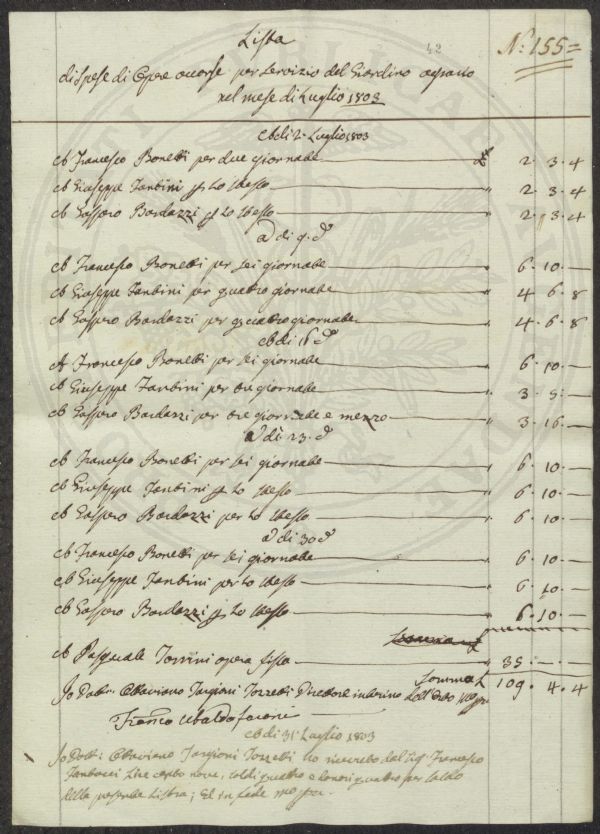 42
N.° 155 =
Lista
di Spese di Opere occorse per servizio del Giardino agrario
nel mese di Luglio 1803
A dì 2. Luglio 1803
A Francesco Bonetti per due giornate £ 2. 3. 4
A Giuseppe Tantini p lo stesso " 2. 3. 4
A Gaspero Bardazzi p lo stesso " 2. 3. 4
A dì 9. d°
A Francesco Bonetti per sei giornate " 6. 10. —
A Giuseppe Tantini per quattro giornate " 4. 6. 8
A Gaspero Bardazzi per quattro giornate " 4. 6. 8
A dì 16 d°
A Francesco Bonetti per sei giornate " 6. 10. —
A Giuseppe Tantini per tre giornate " 3. 5. —
A Gaspero Bardazzi per tre giornate e mezzo " 3. 16. —
A dì 23. d°
A Francesco Bonetti per sei giornate " 6. 10. —
A Giuseppe Tantini p lo stesso " 6. 10. —
A Gaspero Bardazzi per lo stesso " 6. 10. —
A dì 30 d°
A Francesco Bonetti per sei giornate " 6. 10. —
A Giuseppe Tantini per lo stesso " 6. 10. —
A Gaspero Bardazzi p lo stesso " 6. 10. —
Somma £
A Pasquale Torrini opera fissa " 35. — . —
Somma £ 109. 4. 4
Io Dott. Ottaviano Targioni Tozzetti Direttore interino dell'Orto
Franco Ubaldo
A dì 31. Luglio 1803
Io Dott: Ottaviano Targioni Tozzetti ho ricevuto dal Sig. Francesco
Lire cento nove, soldi quattro e denari quattro per saldo
della presente Listra; Ed in fede